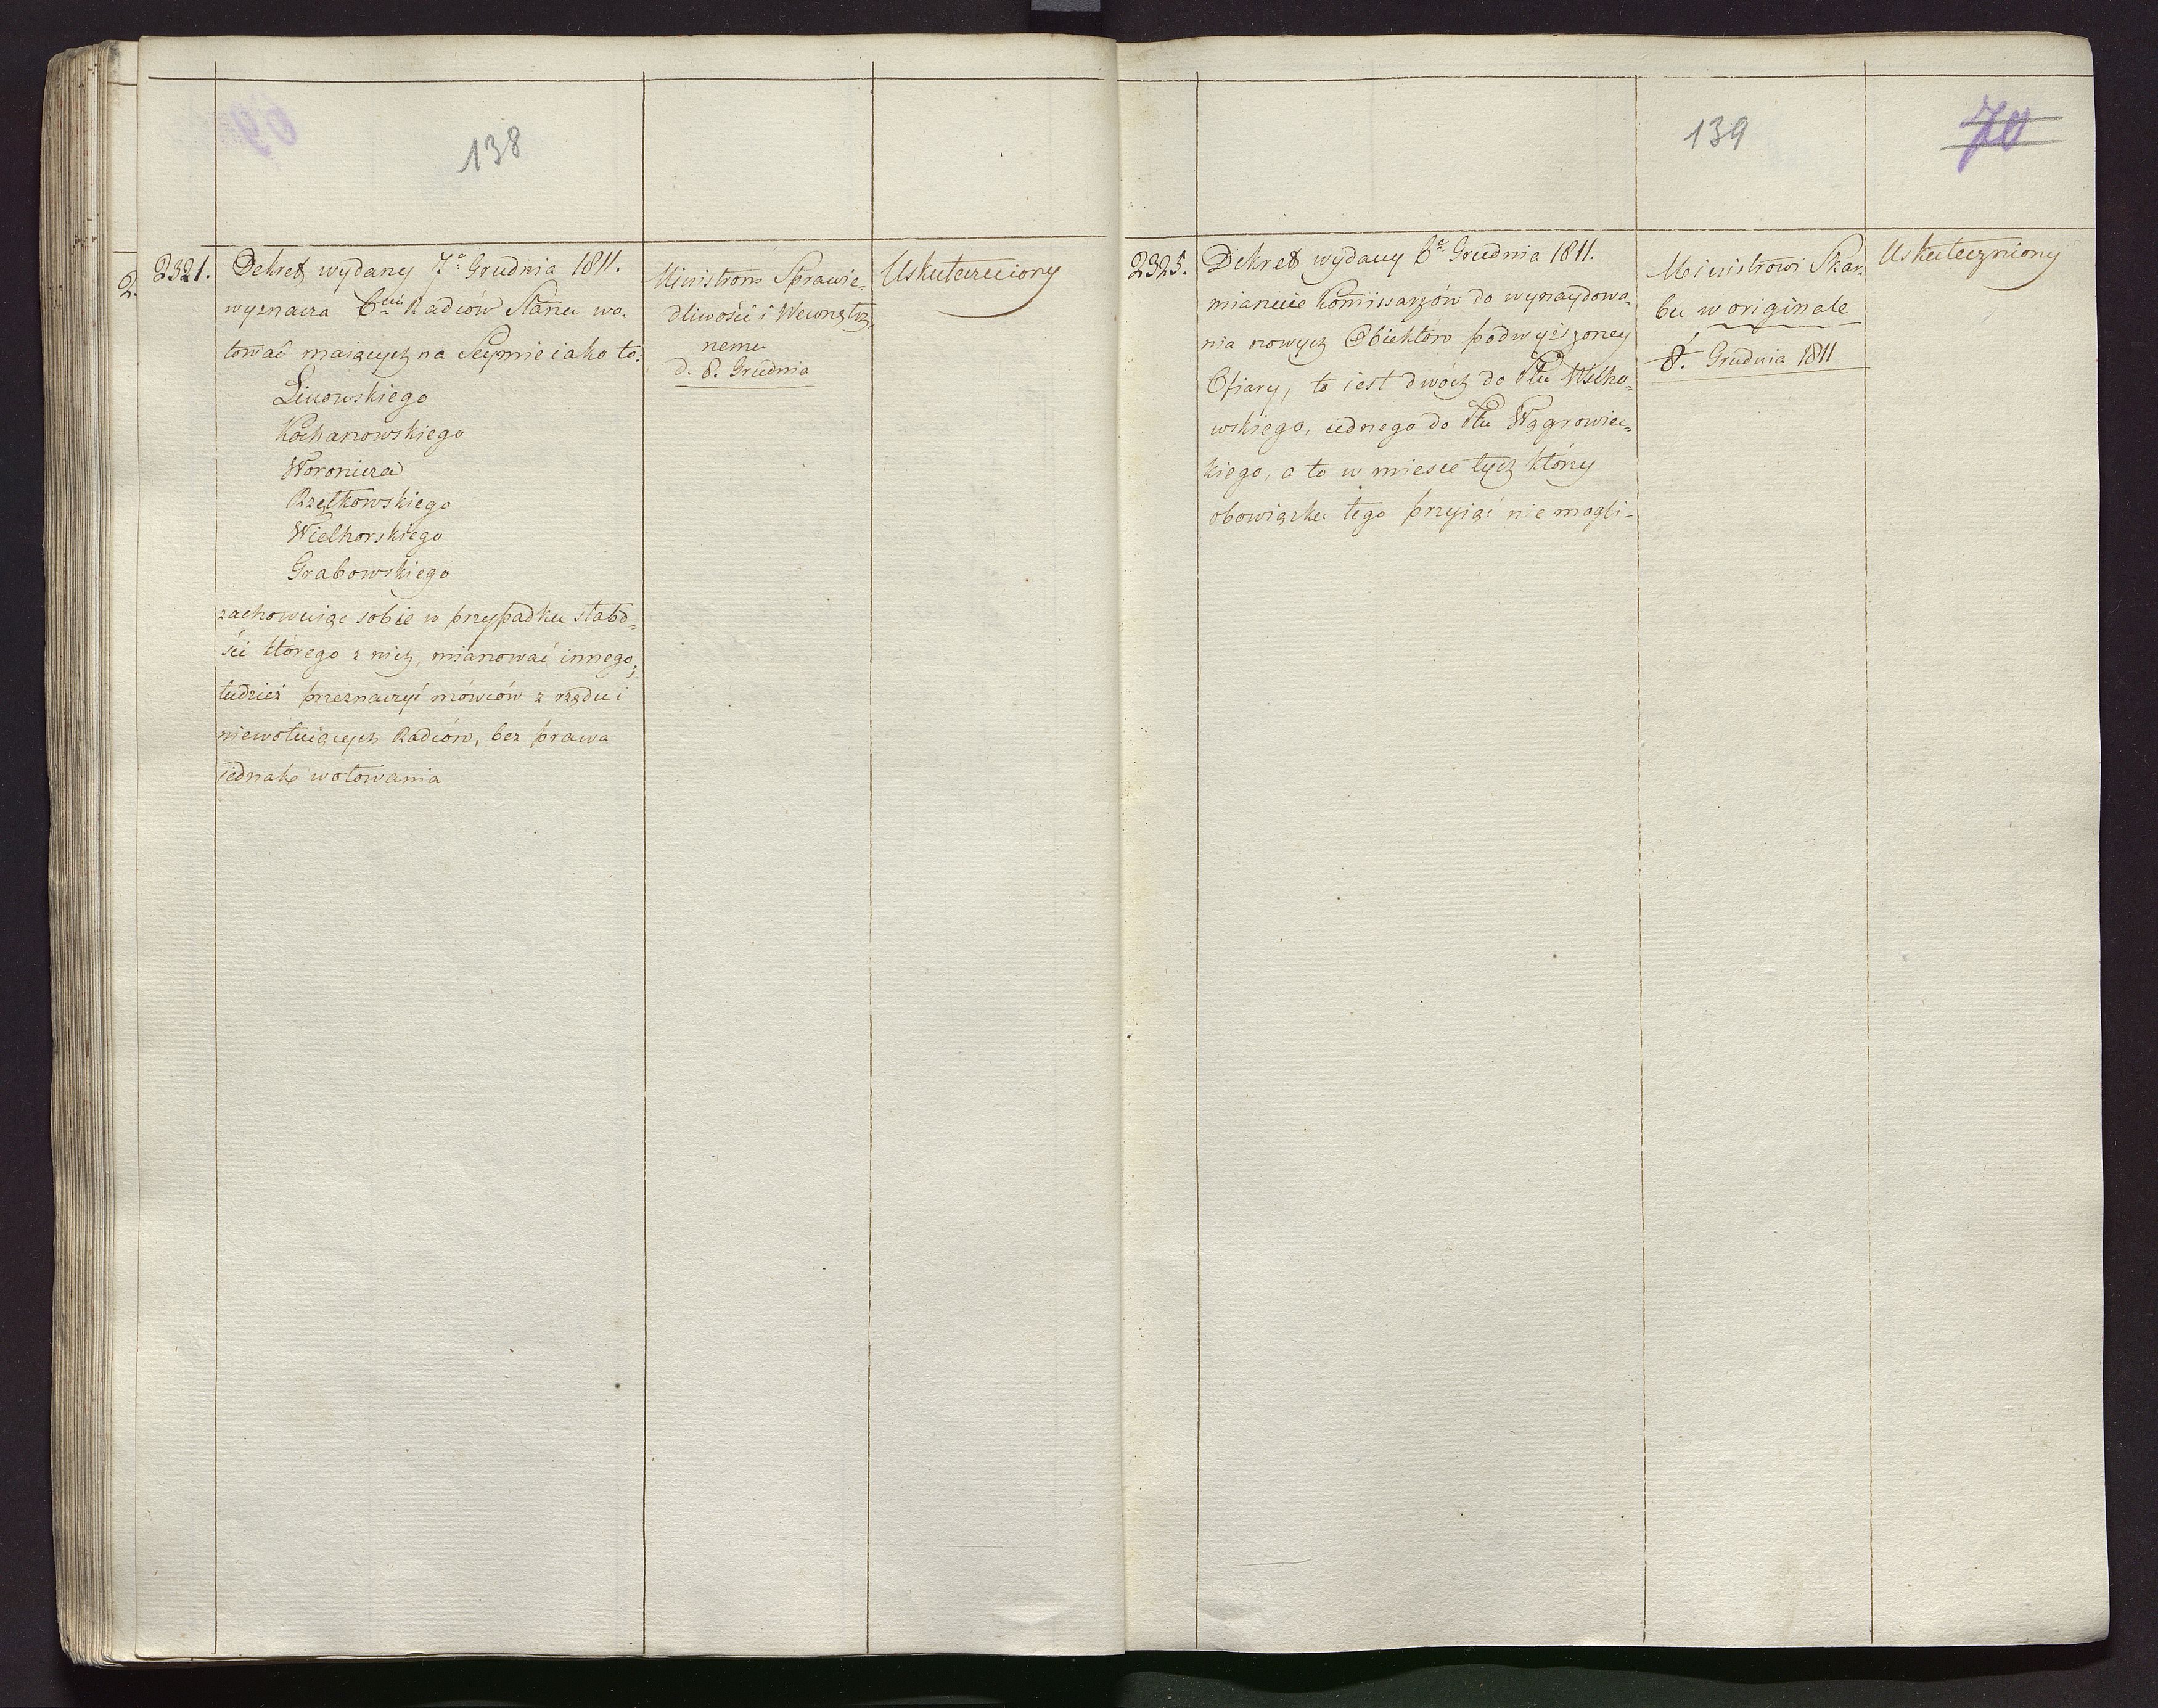 138
2321.
Dekret wydany 7º Grudnia 1811.
wyznacza 6ciu Radców Stanu wo-
tować maiących na Seymie iako to:
Linowskiego
Kochanowskiego
Woronicza
Rzętkowskiego
Wielhorskiego
Grabowskiego
zachowuiąc sobie w przypadku słabo-
ści którego z nich, mianować innego;
tudzież przeznaczyć mówców z rzędu i
niewotuiących Radców, bez prawa
iednak wotowania
Ministrom Sprawie-
dliwości i Wewnętrz-
nemu
d. 8. Grudnia
Uskuteczniony
2.
139
70
2325.
Dekret wydany 6º Grudnia 1811.
mianuie Kommissarzów do wynaydowa-
nia nowych Obiektów podwyższoney
Ofiary, to iest dwóch do Ptu
wskiego, iednego do Ptu Wągrowiec-
kiego, a to w miesce tych którzy
obowiązku tego przyiąć nie mogli-
Ministrowi Skar-
bu w originale
8. Grudnia 1811
Uskuteczniony